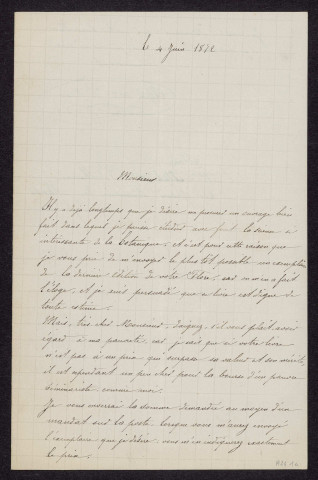 4 Juin 18
Monsieur
Il y a déjà longtemps que je désire me procurer un ouvrage bien
fait dans lequel je puisse étudier avec fruit la science si
intéressante de la Botanique, et c'est pour cette raison que
je vous prie de m'envoyer le plus tôt possible un exemplaire
de la dernière édition de votre Flore, car on m'en a fait
l'éloge, et je suis persuadé que ce livre est digne de
toute estime.
Mais, très cher Monsieur, daignez, s'il vous plaît, avoir
égard à ma pauvreté, car je sais que si votre livre
n'est pas à un prix qui surpasse sa valeur et son mérite,
il est cependant un peu cher pour la bourse d'un pauvre
séminariste comme moi.
Je vous enverrai la somme demandée au moyen d'un
mandat sur la poste lorsque vous m'aurez envoyé
l'exemplaire que je désire; vous m'en indiquerez exactement
le prix.